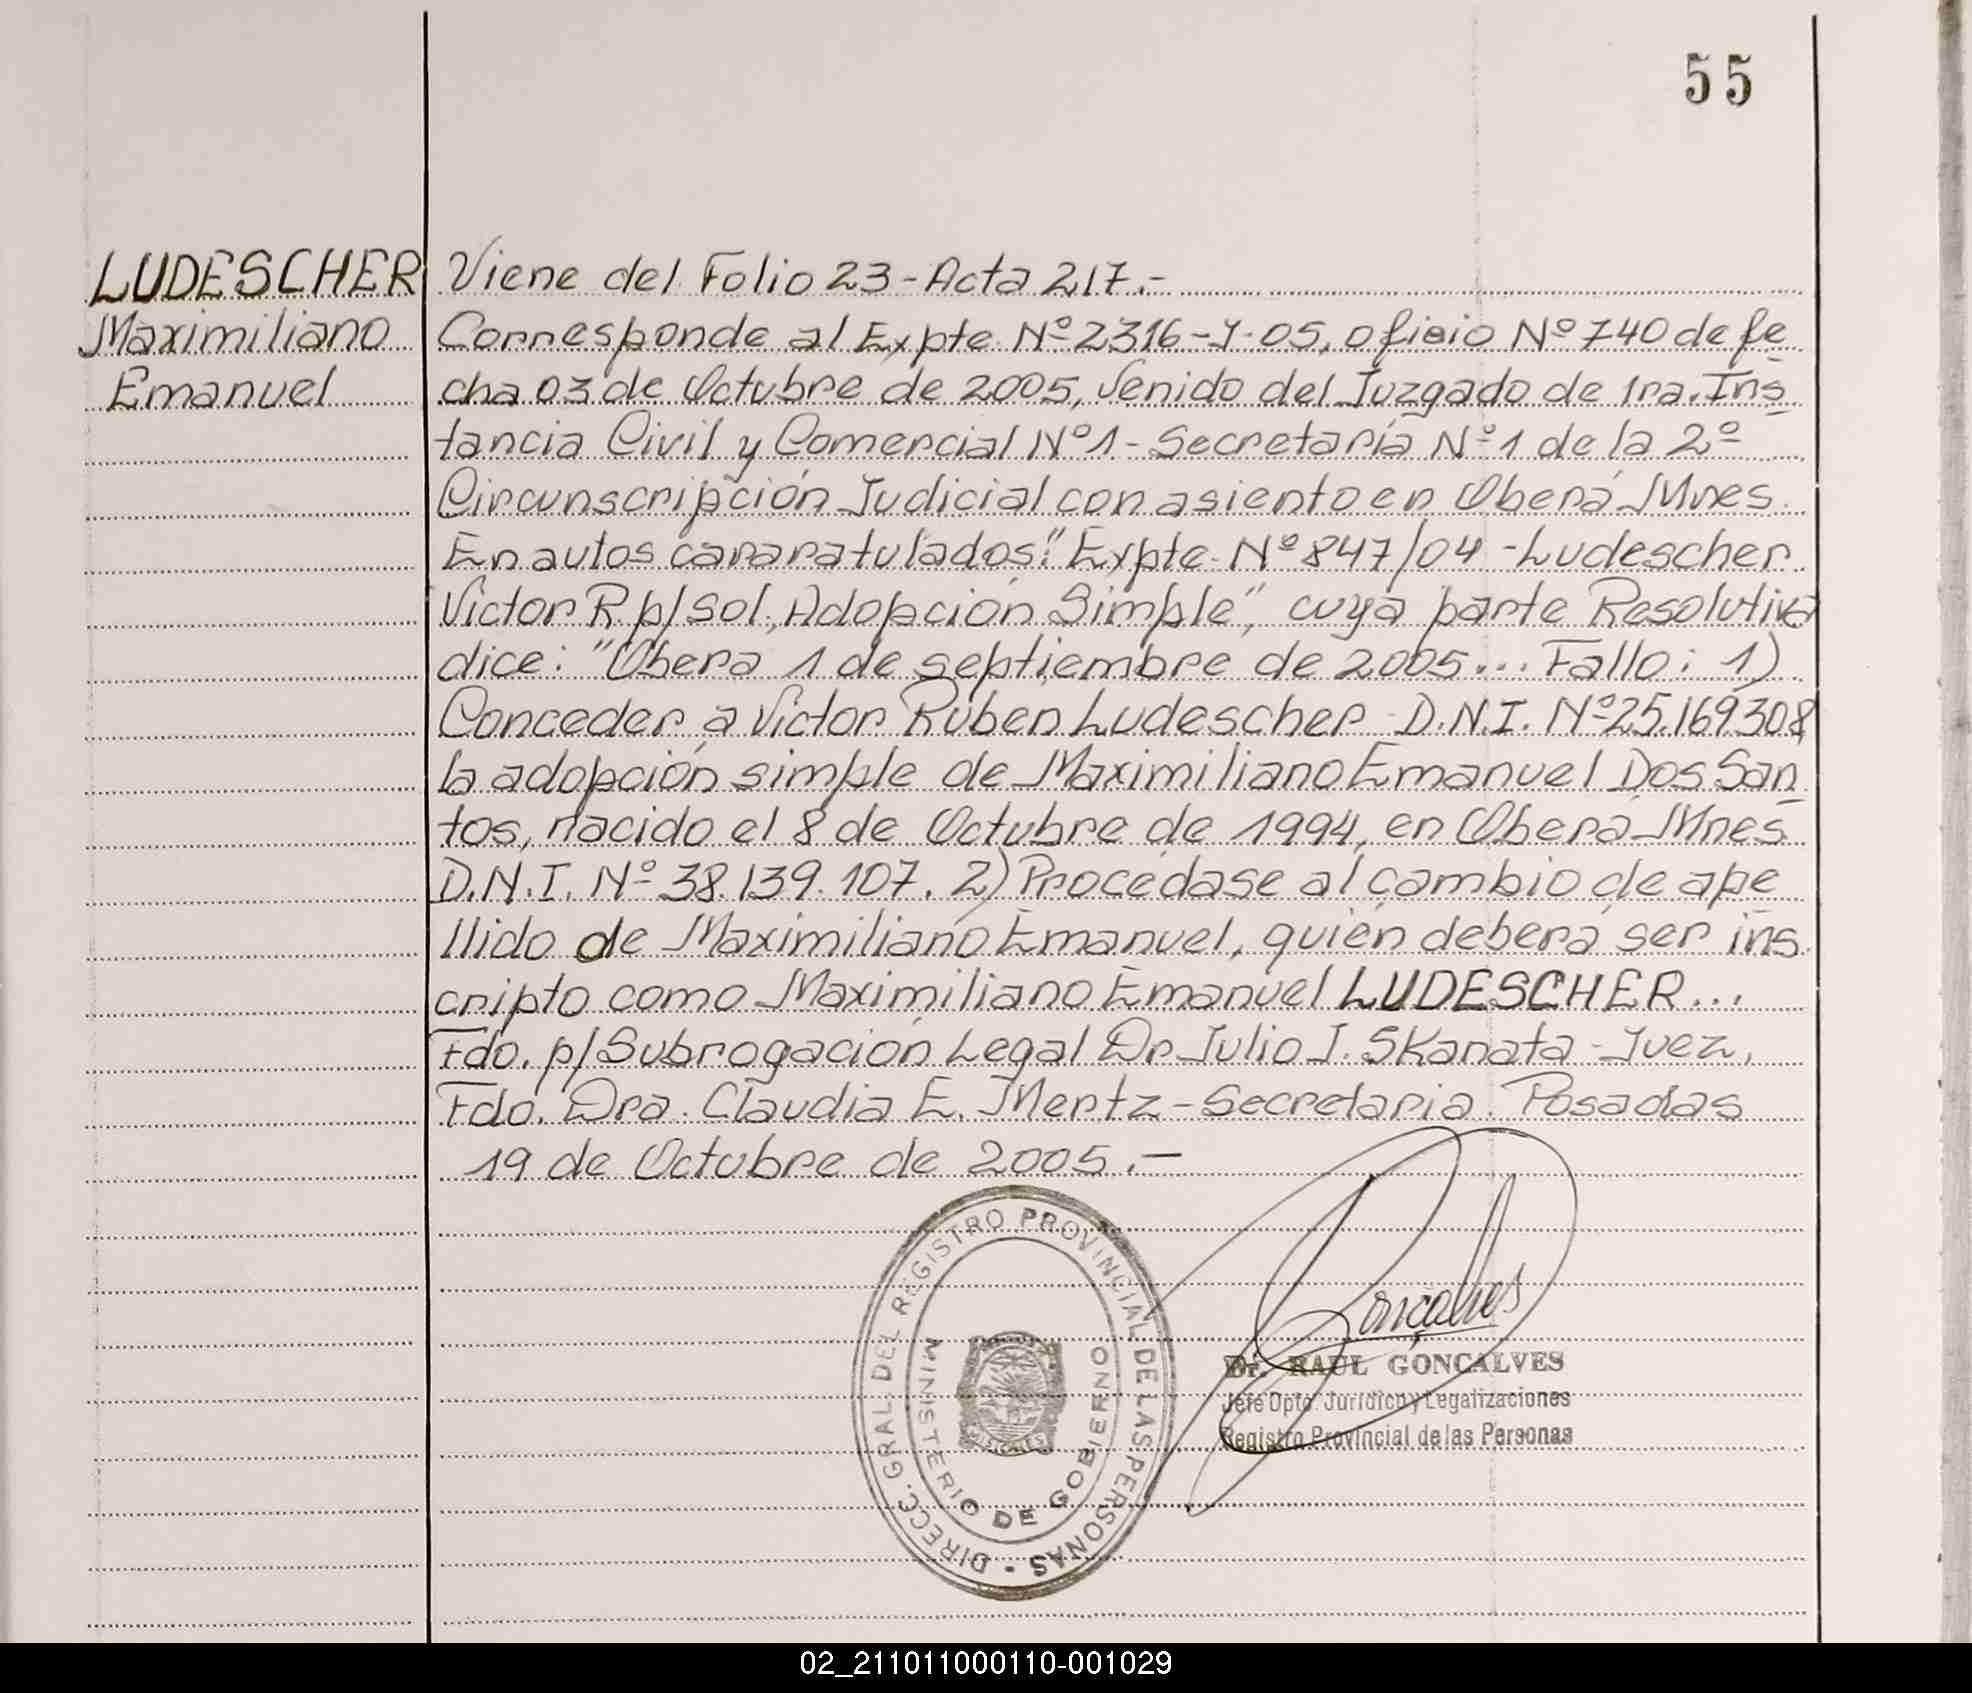 55
LUDESCHER
Maximiliano
Emanuel
Viene del Folio 23-Acta 217.-
Corresponde al Expte Nº 2316-Y-05, oficio Nº 740 de fe
cha 03 de Octubre de 2005, Venido del Juzgado de 1ra. Ins
tancia Civil y Comercial Nº 1- Secretaría Nº 1 de la 2º
Circunscripción Judicial con asiento en Oberá Mnes.
En autos cararatulados: "Expte. Nº 847/04 -Ludescher
Victor R. p/Sol., Adopción Simple", cuya parte Resolutiva
dice: "Obera 1 de septiembre de 2005... Fallo: 1)
Conceder a Victor Rúben Ludescher D.N.I. Nº 25.169.308
la adopción simple de Maximiliano Emanuel Dos San
tos, nacido el 8 de Octubre de 1994, en Oberá Mnes
D.N.I. Nº 38.139.107. 2) Procédase al cambio de ape
llido de Maximiliano Emanuel, quién deberá ser ins
cripto como Maximiliano Emanuel LUDESCHER...
Fdo. p/Subrogación Legal Dr Julio J. SKanata - Juez,
Fdo. Dra. Claudia E. Mertz - Secretaria. Posadas
19 de Octubre de 2005.-
DIRECC. GRAL. DEL REGISTRO PROVINCIAL DE LAS PERSONAS
MINISTERIO DE GOBIERNO
MISIONES
Gonçalves
Dr. RAUL GONCALVES
Jefe Dpto. Jurídico y Legalizaciones
Registro Provincial de las Personas
02_211011000110-001029